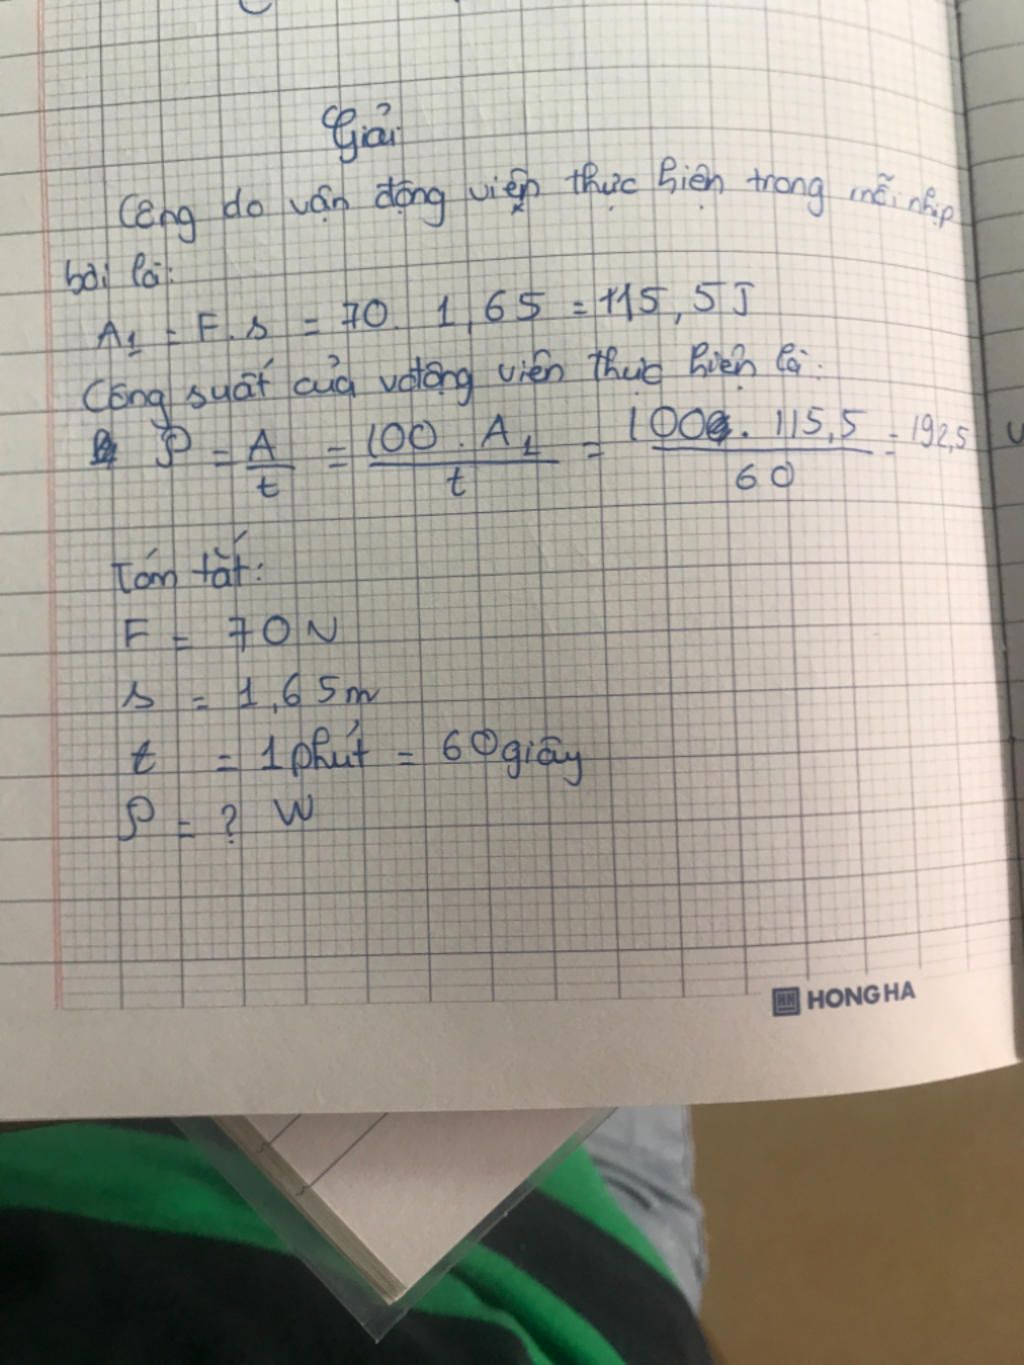 Giải
Công do vận động viên thực hiện trong mỗi nhịp
bơi là:
A₁ = F.s = 70. 1,65 = 115,5J
Công suất của vđộng viên thực hiện là:
℘ = A/t = 100.A₁/t = 100.115,5/60 = 192,5
Tóm tắt:
F = 70N
s = 1,65m
t = 1phút = 60giây
℘ = ? W
HH HONG HA